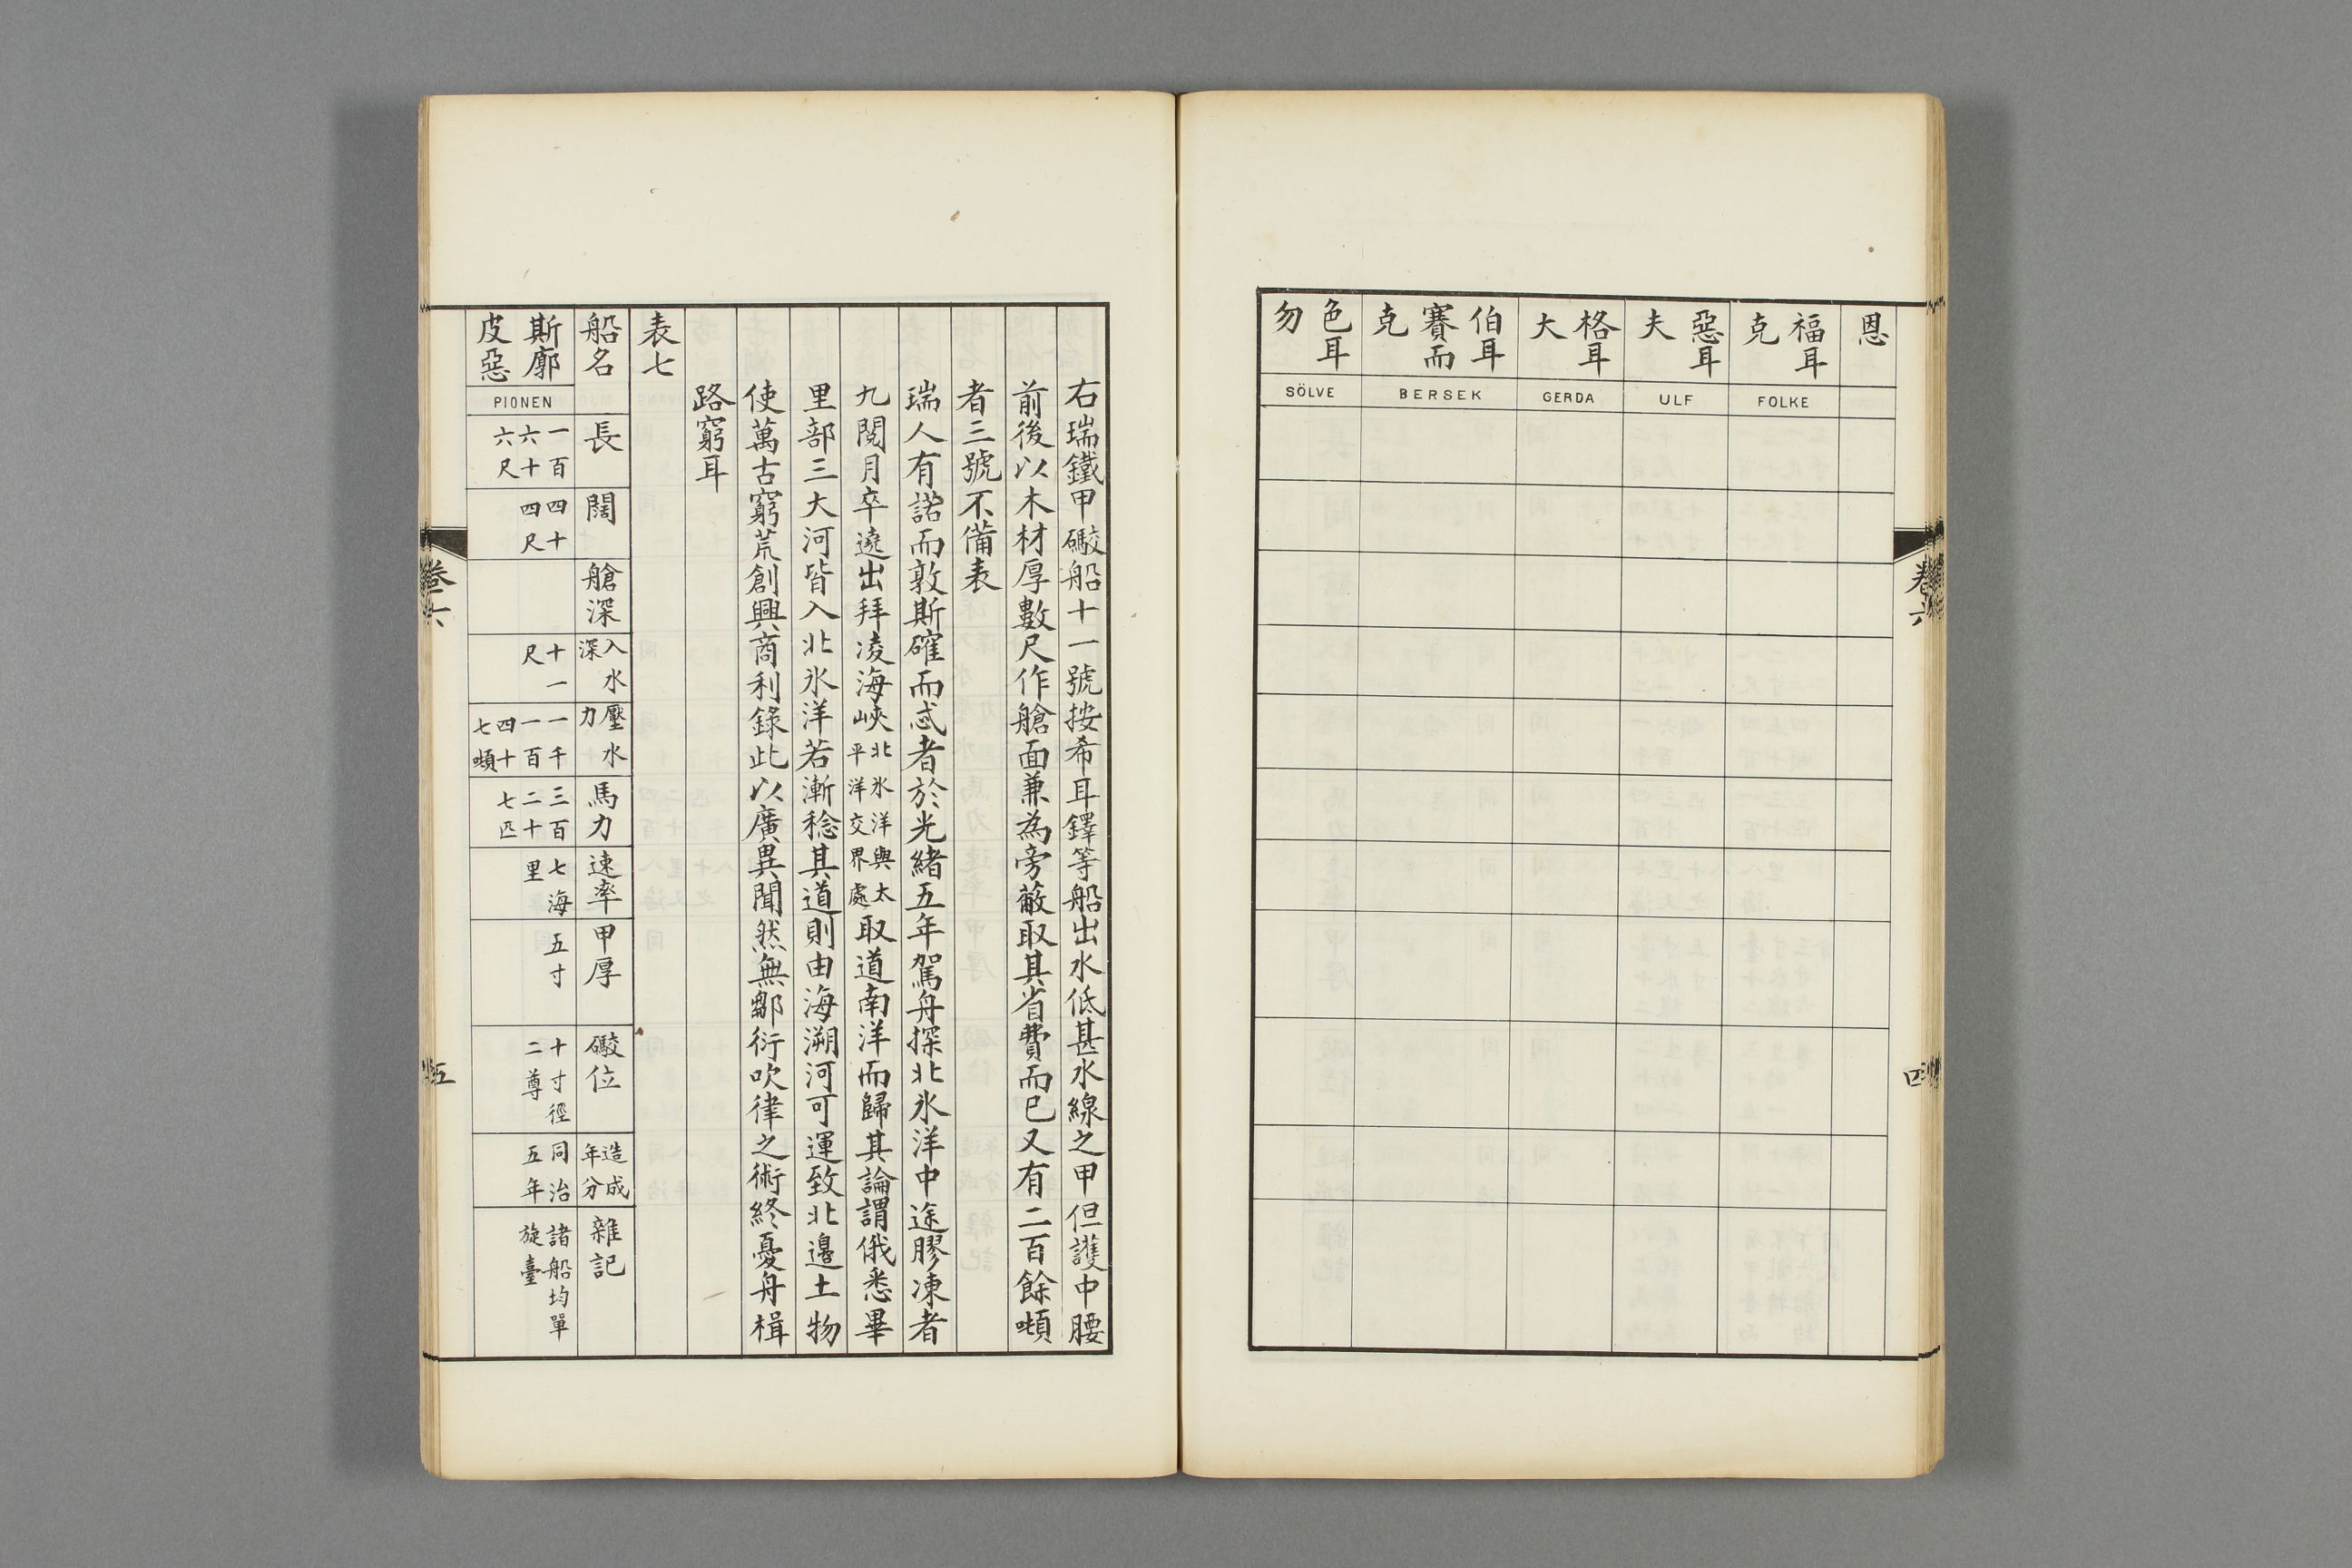 恩
福耳
克
FOLKE
惡耳
夫
ULF
格耳
大
GERDA
伯耳
賽而
克
BERSEK
色耳
勿
SÖLVE
卷六
四
右瑞鐵甲礮船十一號按希耳鐸等船出水低甚水線之甲但護中腰
前後以木材厚數尺作艙面兼為旁蔽取其省費而已又有二百餘噸
者三號不備表
瑞人有諾而敦斯確而忒者於光緒五年駕舟探北氷洋中途膠凍者
九閱月卒遶出拜凌海峽北氷洋與太平洋交界處取道南洋而歸其論謂俄悉畢
里部三大河皆入北氷洋若漸稔其道則由海溯河可運致北邊土物
使萬古窮荒創興商利錄此以廣異聞然無鄒衍吹律之術終憂舟楫
路窮耳
表七
船名
長
闊
艙深
入水
深
壓水
力
馬力
速率
甲厚
礮位
造成
年分
雜記
斯廓
皮惡
PIONEN
一百
六十
六尺
四十
四尺
十一
尺
一千
一百
四十
七噸
三百
二十
七匹
七海
里
五寸
十寸徑
二尊
同治
五年
諸船均單
旋臺
卷六
五